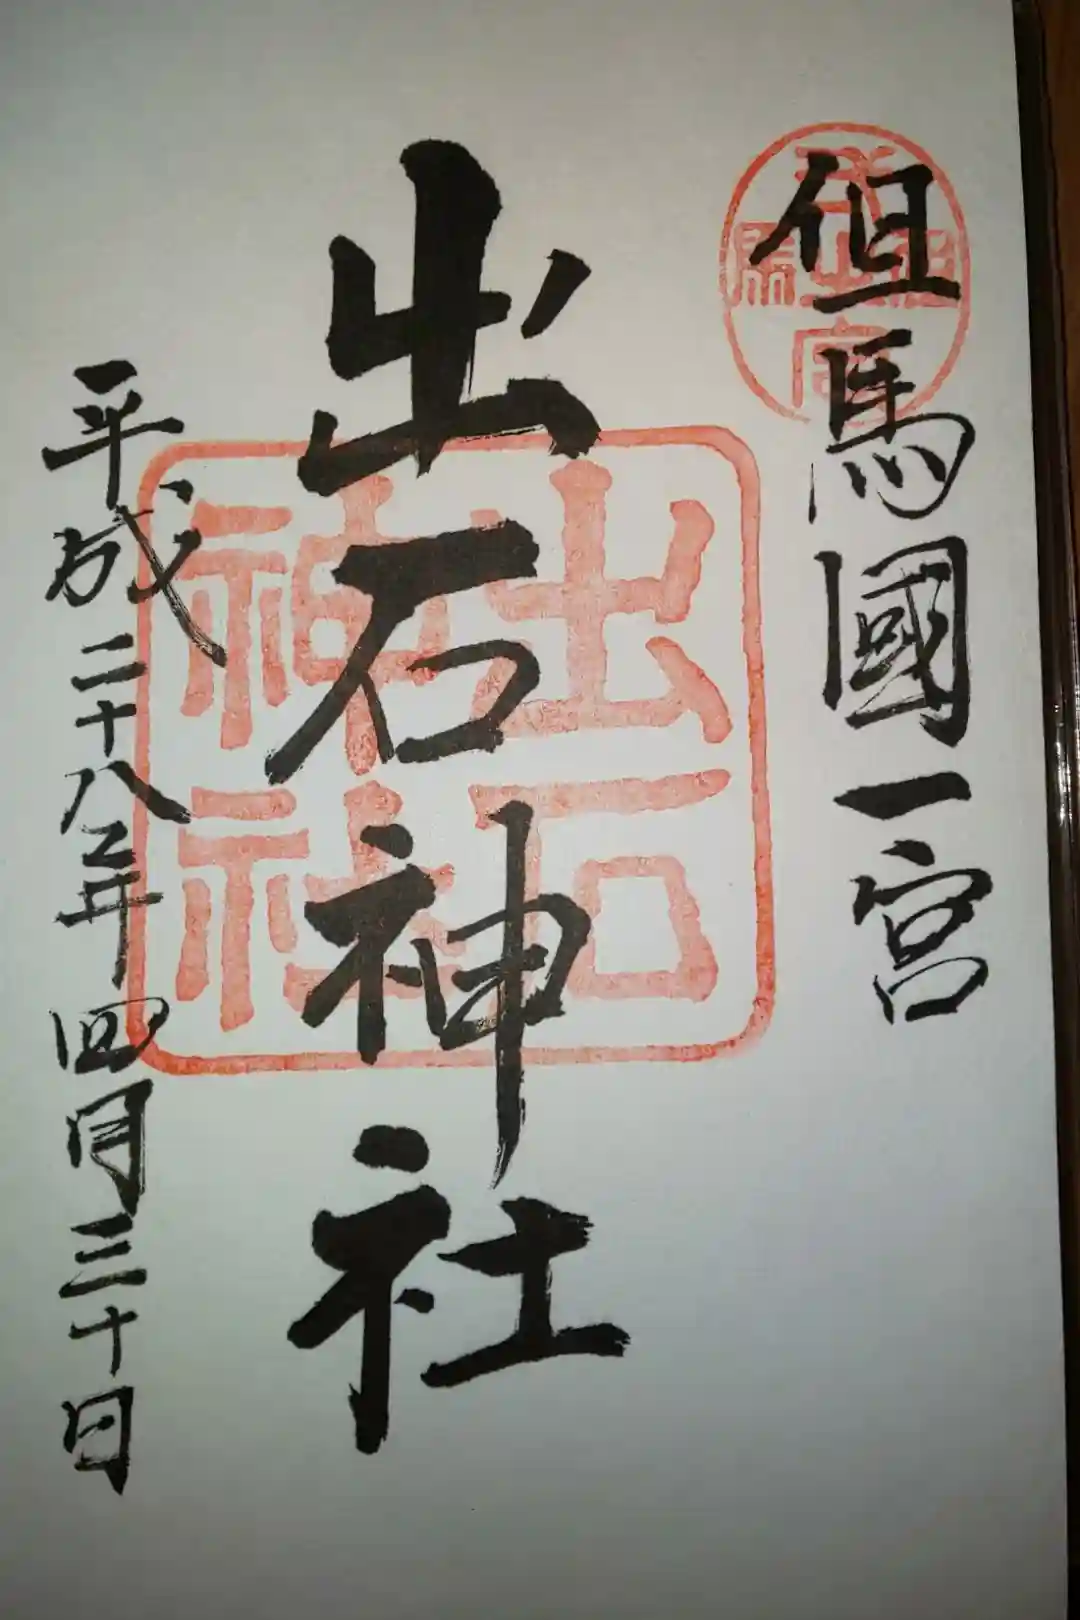 但馬國一宮
出石神社
出石神社
平成二十八年四月三十日